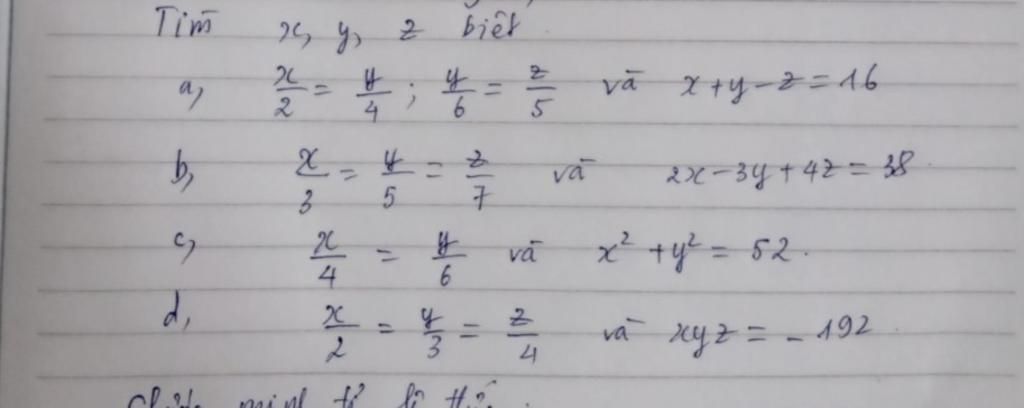 Tìm x, y, z biết
a, x/2 = y/4 ; y/6 = z/5 và x + y - z = 16
b, x/3 = y/5 = z/7 và 2x - 3y + 4z = 38.
c, x/4 = y/6 và x² + y² = 52.
d, x/2 = y/3 = z/4 và xyz = - 192.
minh tỉ